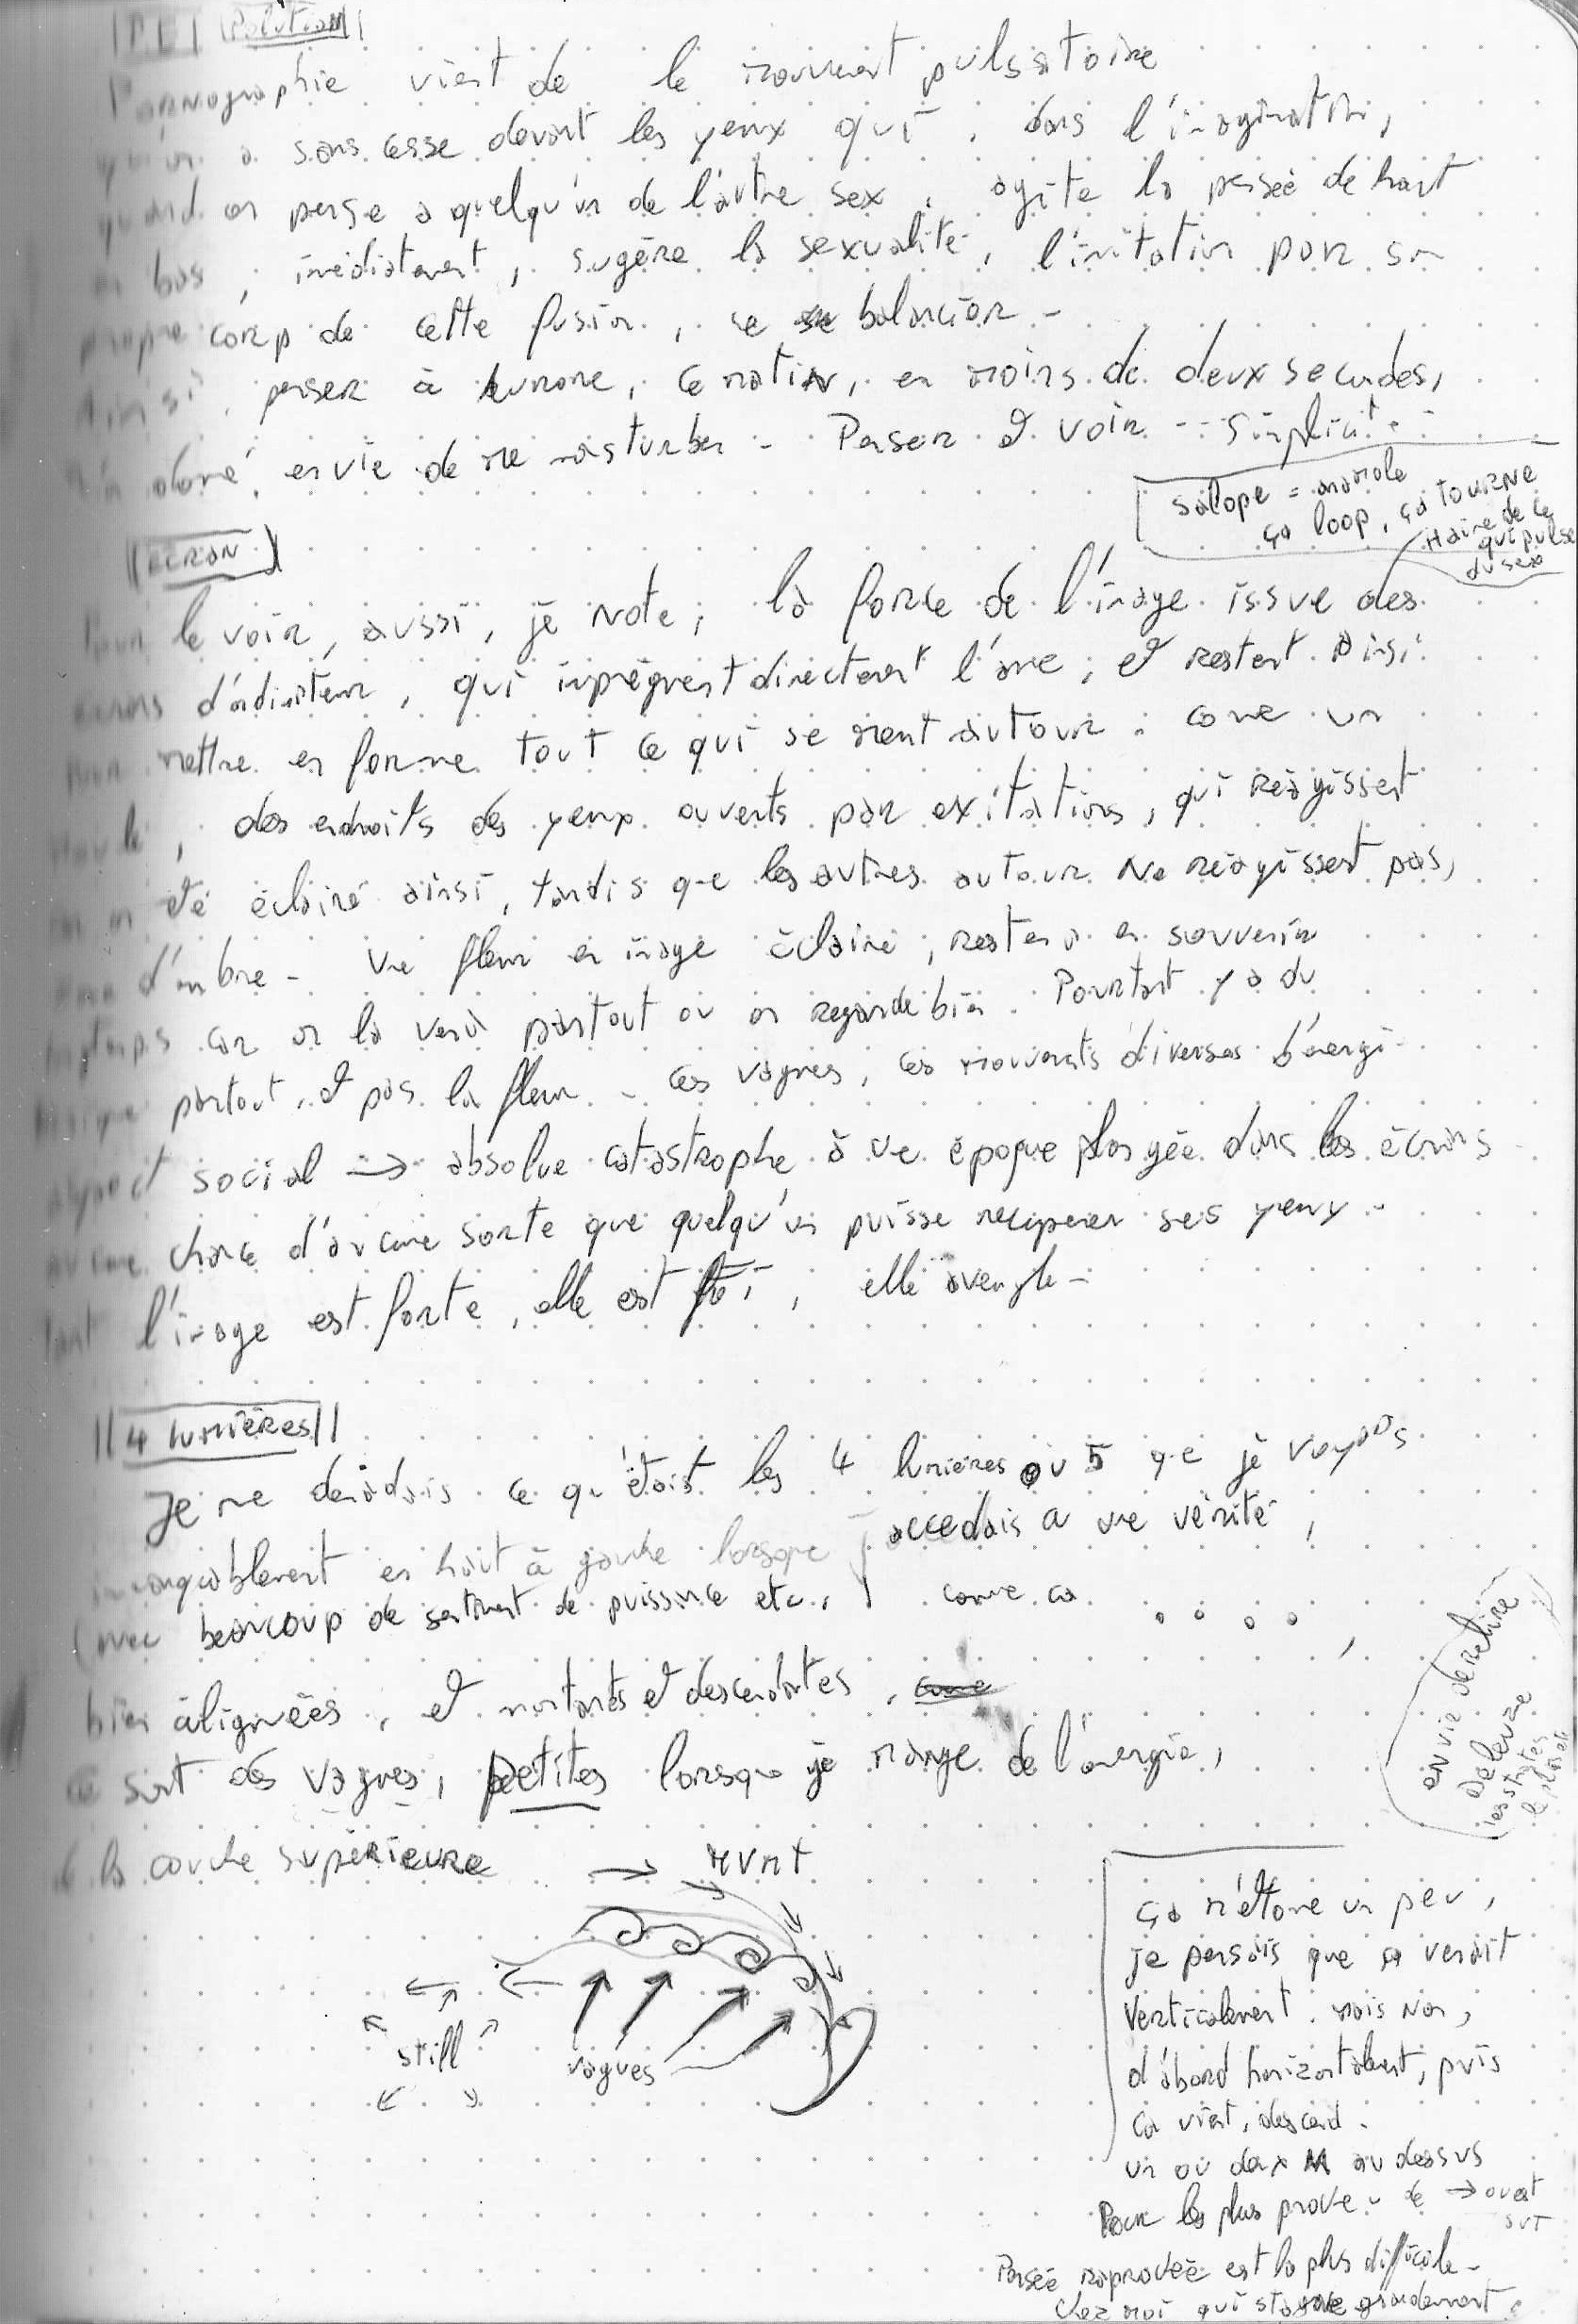 Pornographie vient de le mouvement pulsatoire
qu'on a sans cesse devant les yeux qui, dans l'imagination,
quand on pense a quelqu'un de l'autre sex, agite la pensée de haut
en bas, imédiatement, sugère la sexualité, l'imitation par son
propre corp de cette fusion, se balancier -
Ainsi, penser à, ce matin, en moins de deux secondes,
m'a doné envie de me masturber - Penser et voir -- Simplicité
salope = 
ça loop, ça tourne
Haine de ce
qui pulse
du sex
ECRAN
Pour le voir, aussi, je note, la force de l'image issue des
écrans d'ordinateur, qui imprègnent directement l'ame, et restent ainsi
pour mettre en forme tout ce qui se meut autour, come un
moule, des endroits des yeux ouverts par exitations, qui réagissent
car on été éclairé ainsi, tandis que les autres autour ne réagissent pas,
d'ombre - Une fleur en image éclairé, restera en souvenir
longtemps car on la verà partout ou on regarde bien. Pourtant y a du
partout, et pas la fleur - ces vagues, ces mouvements diverses d'énergi-
aspect social → absolue catastrophe à une époque plongée dans les écrans
aucune chance d'aucune sorte que quelqu'un puisse récuperer ses yeux -
tant l'image est forte, elle est, elle aveugle -
4 lumières
Je me demandais ce qu'étoit les 4 lumières ou 5 que je voyais
immanquablement en haut à gauche lorsque j'accedais a une vérité,
(avec beaucoup de sentiment de puissance etc., come ca
bien alignéés, et montantes et descendantes,
ce sont des vagues, petites lorsque je mange de l'énergie,
de la couche supérieure
→ MVMT
still
vagues
envie de relire
Deleuze
les strates
ça m'étone un peu,
je pensais que ça venait
verticalement. mais non,
d'abord horizontalement, puis
ça vient, descend.
un ou deux M au dessus
Pour les plus
→ ouest
Pensée est la plus difficile -
chez moi qui stagne grandement.